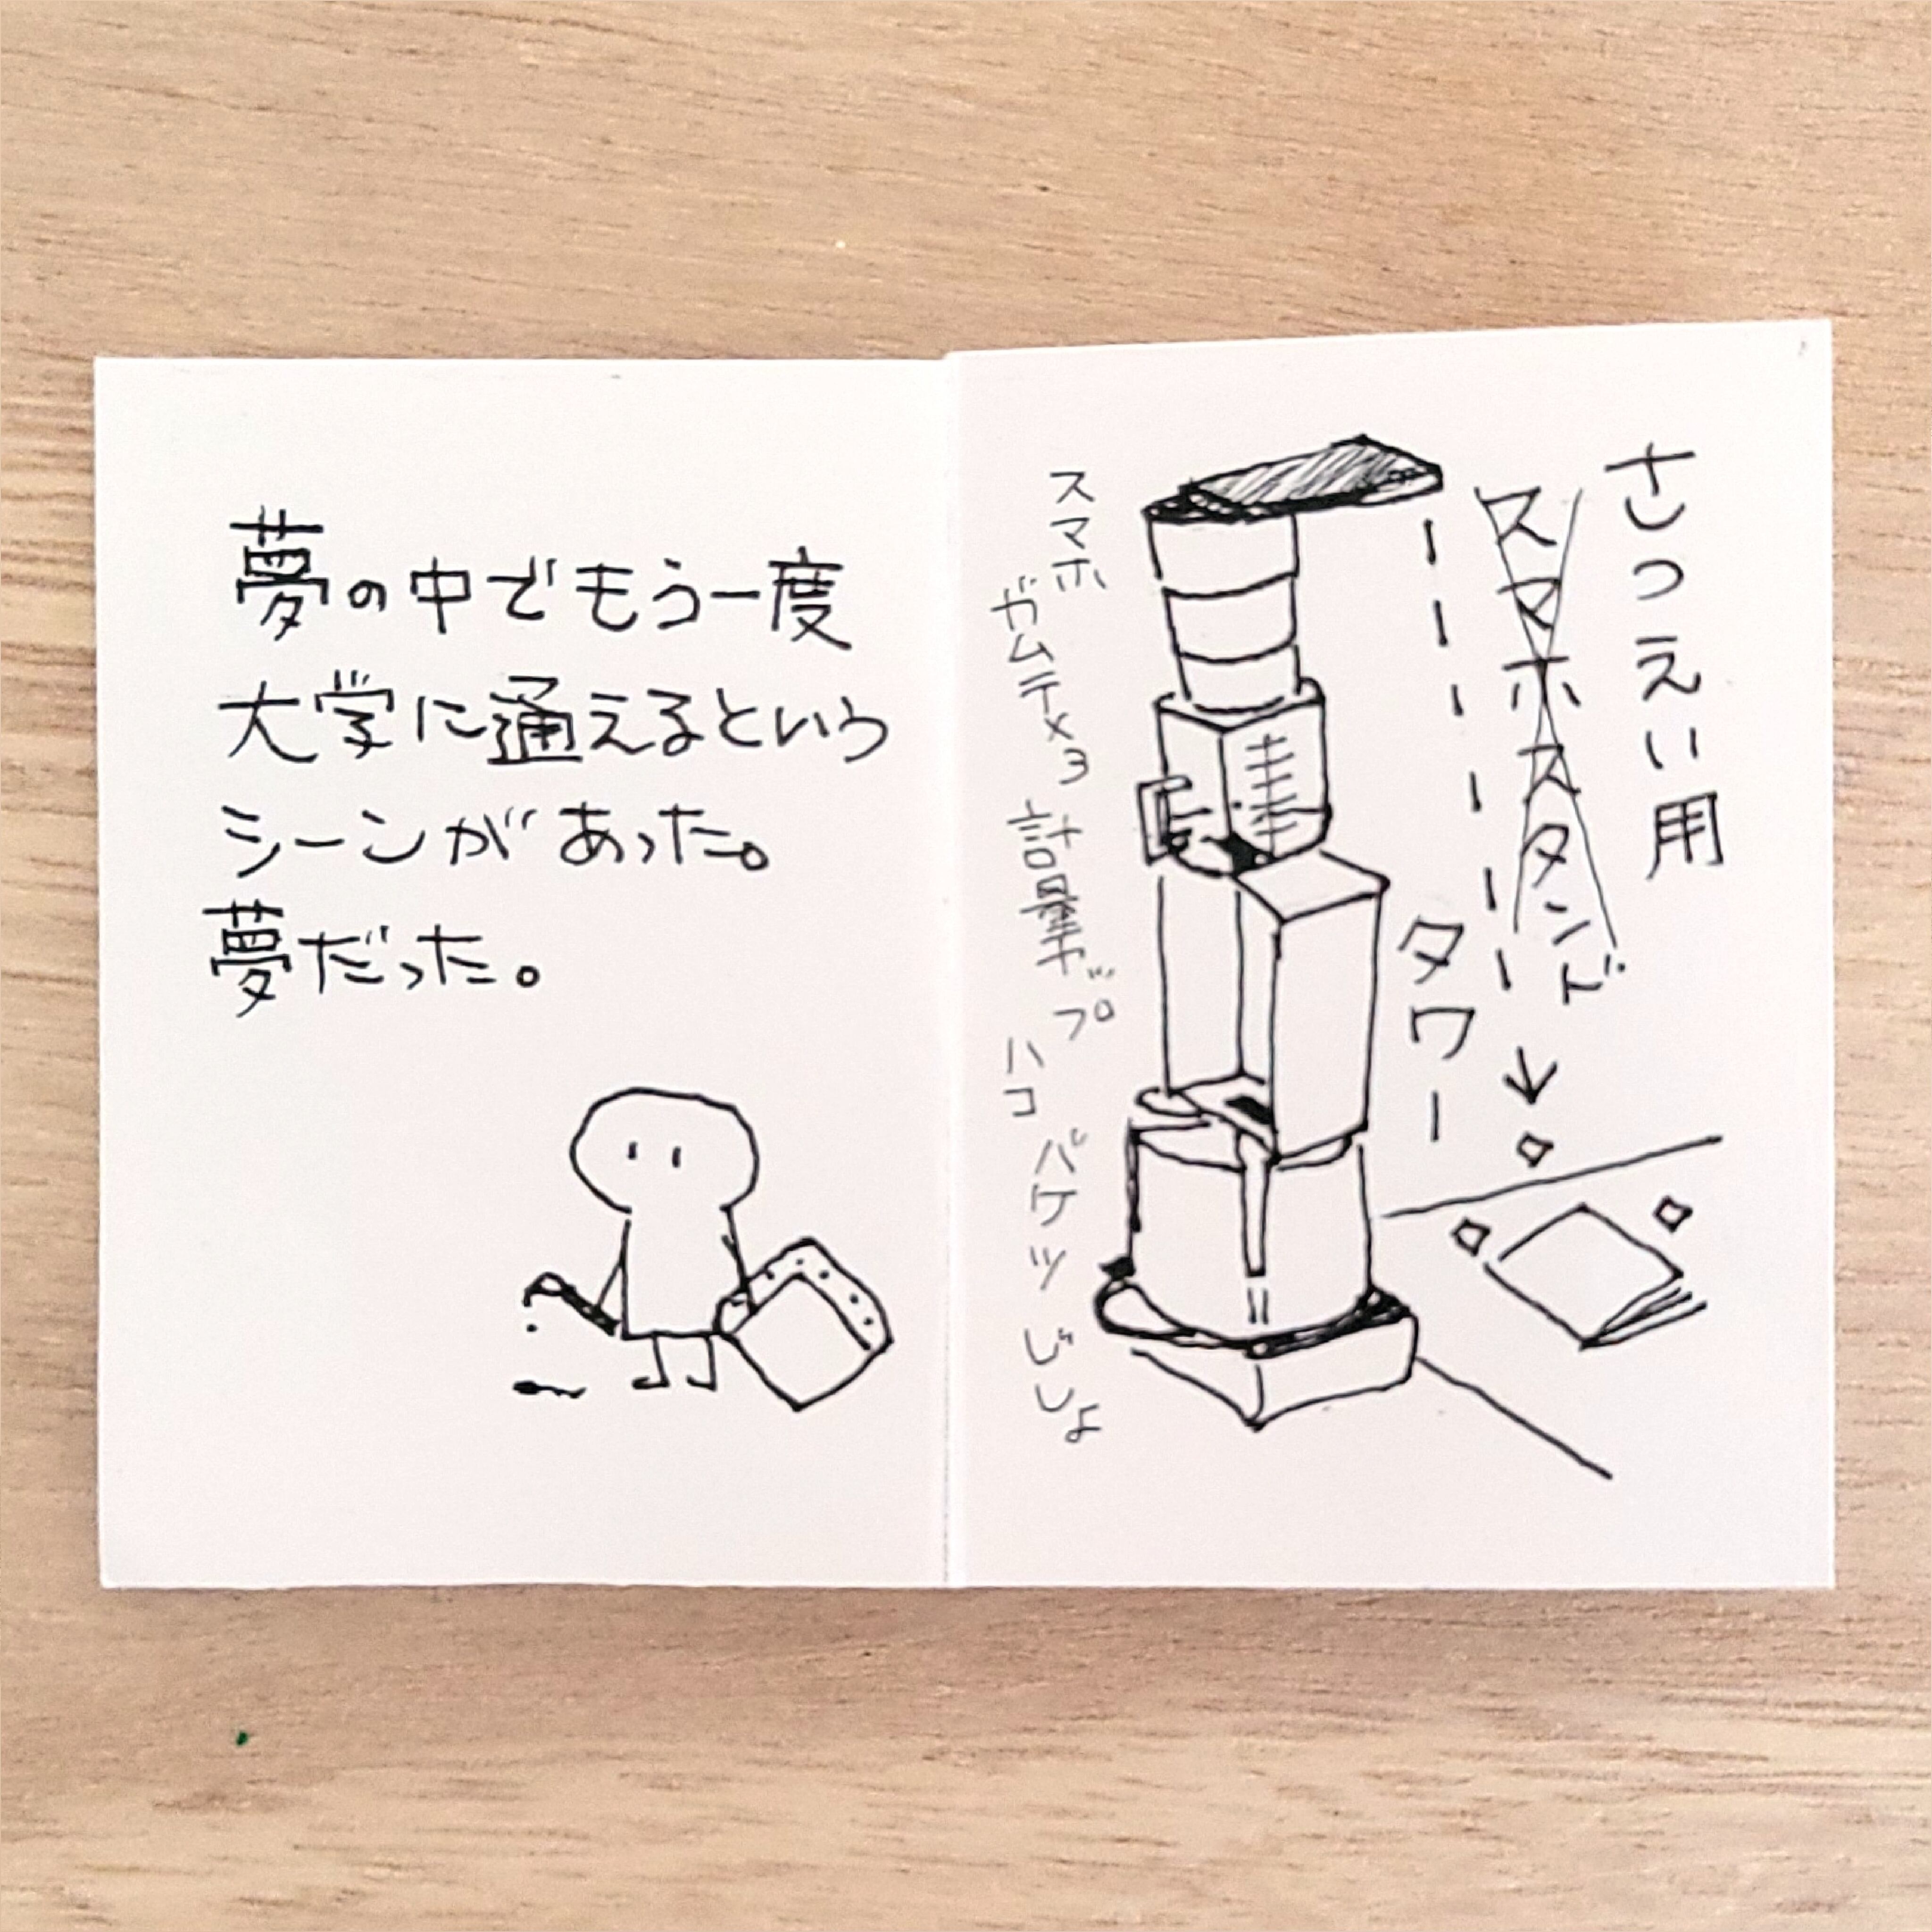 夢の中でもう一度
大学に通えるという
シーンがあった。
夢だった。
さつえい用
スマホスタンド
タワー
スマホ
ガムテ×3
計量カップ
ハコ
バケツ
じしょ